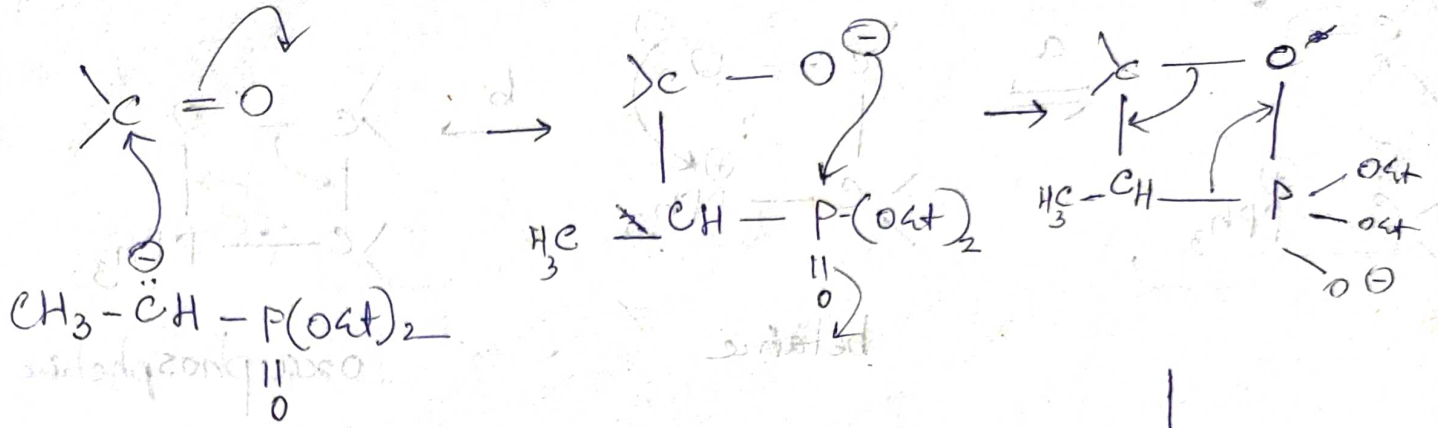 C = O
CH3 - C̈H - P(OEt)2
⊖
||
O
C - O ⊖
H3C CH - P-(OEt)2
||
O
C - O
H3C - CH - P
OEt
OEt
O ⊖